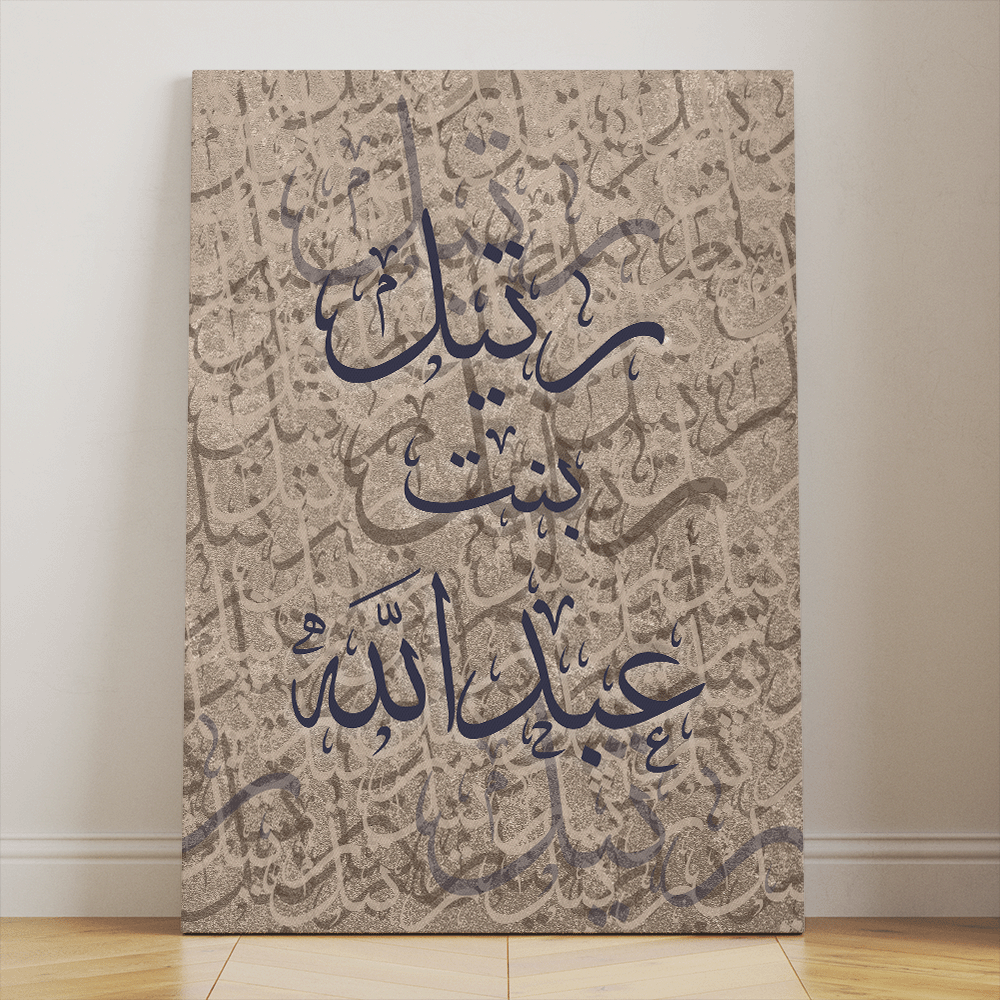 رتيل
بنت
عبدالله